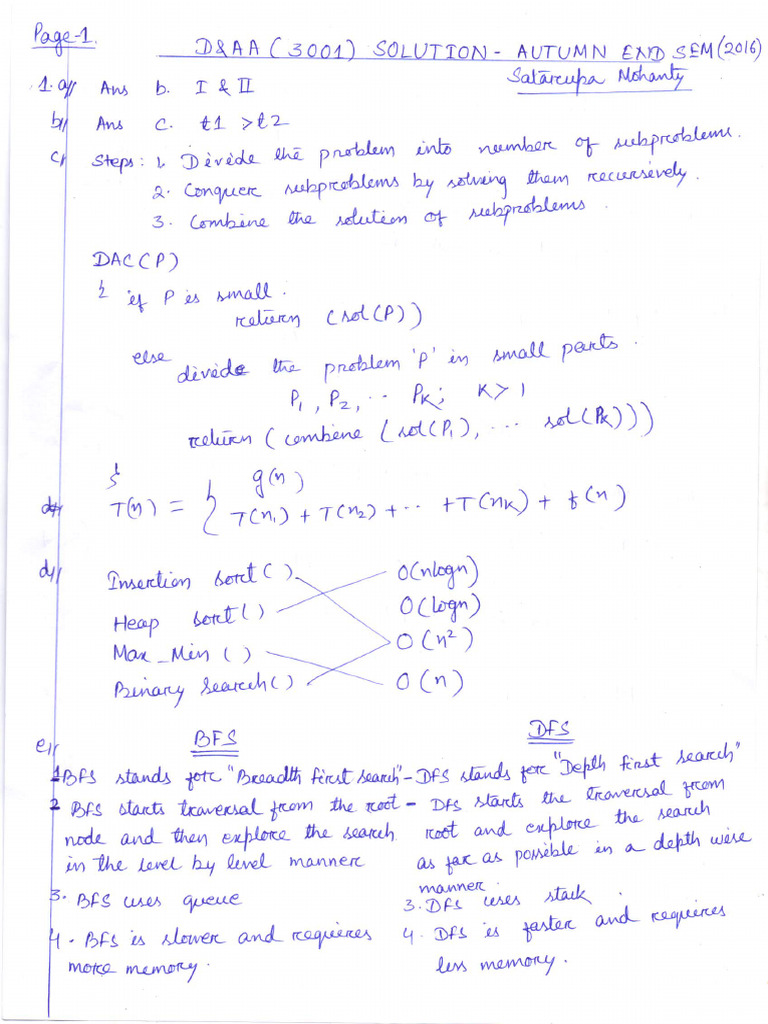 Page-1.
D&AA (3001) SOLUTION - AUTUMN END SEM (2016)
Satarupa Mohanty
1.a// Ans b. I & II
b// Ans c. t1 > t2
c, Steps: 1. Divide the problem into number of subproblems.
2. Conquer subproblems by solving them recursively.
3. Combine the solution of subproblems.
DAC(P)
{ if P is small.
return (sol(P))
else
divide the problem 'P' in small parts.
P1, P2, .. PK; K > 1
return (combine (sol(P1), ... sol(PK)))
}
g(n)
T(n) = { T(n1) + T(n2) + ... + T(nK) + f(n)
d// Insertion sort() O(nlogn)
Heap sort() O(logn)
Max_Min() O(n²)
Binary Search() O(n)
e// BFS DFS
1 BFS stands for "Breadth first search" - DFS stands for "Depth first search"
2 BFS starts traversal from the root - DFS starts the traversal from
node and then explore the search root and explore the search
in the level by level manner as far as possible in a depth wise
manner.
3. BFS uses queue 3. DFS uses stack.
4. BFS is slower and requires 4. DFS is faster and requires
more memory. less memory.